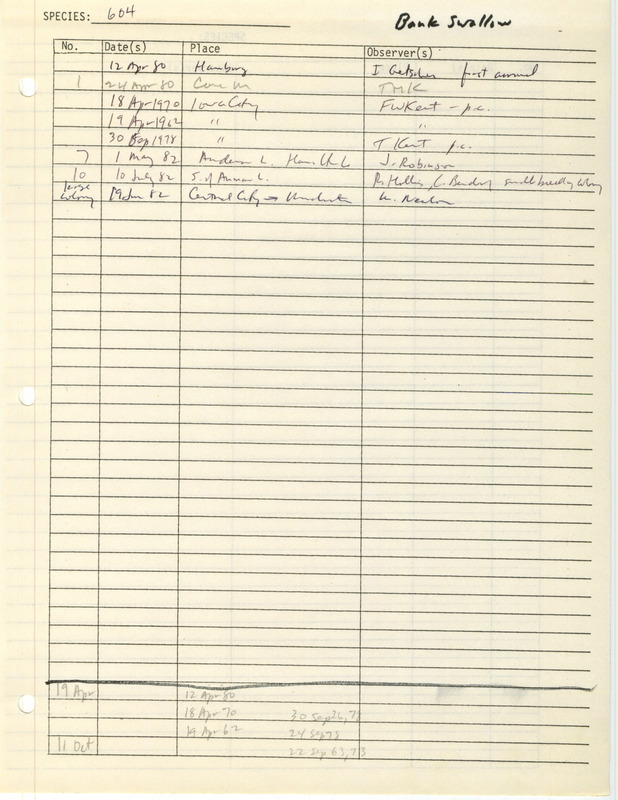 SPECIES: 604 Bank Swallow
No. Date(s) Place Observer(s)
12 Apr 80 Hamburg I Getscher first arrival
1 24 Apr 80 TMK
18 Apr 1970 Iowa City FWKent - p.c.
19 Apr 1962 " "
30 Sep 1978 " T Kent p.c.
7 1 May 82 J. Robinson
10 10 July 82 S. of small breeding colony
large colony 19 Jun 82 Central City →
19 Apr 12 Apr 80
18 Apr 70 30 Sep 36, 78
19 Apr 62 24 Sep 78
11 Oct 22 Sep 63, 73